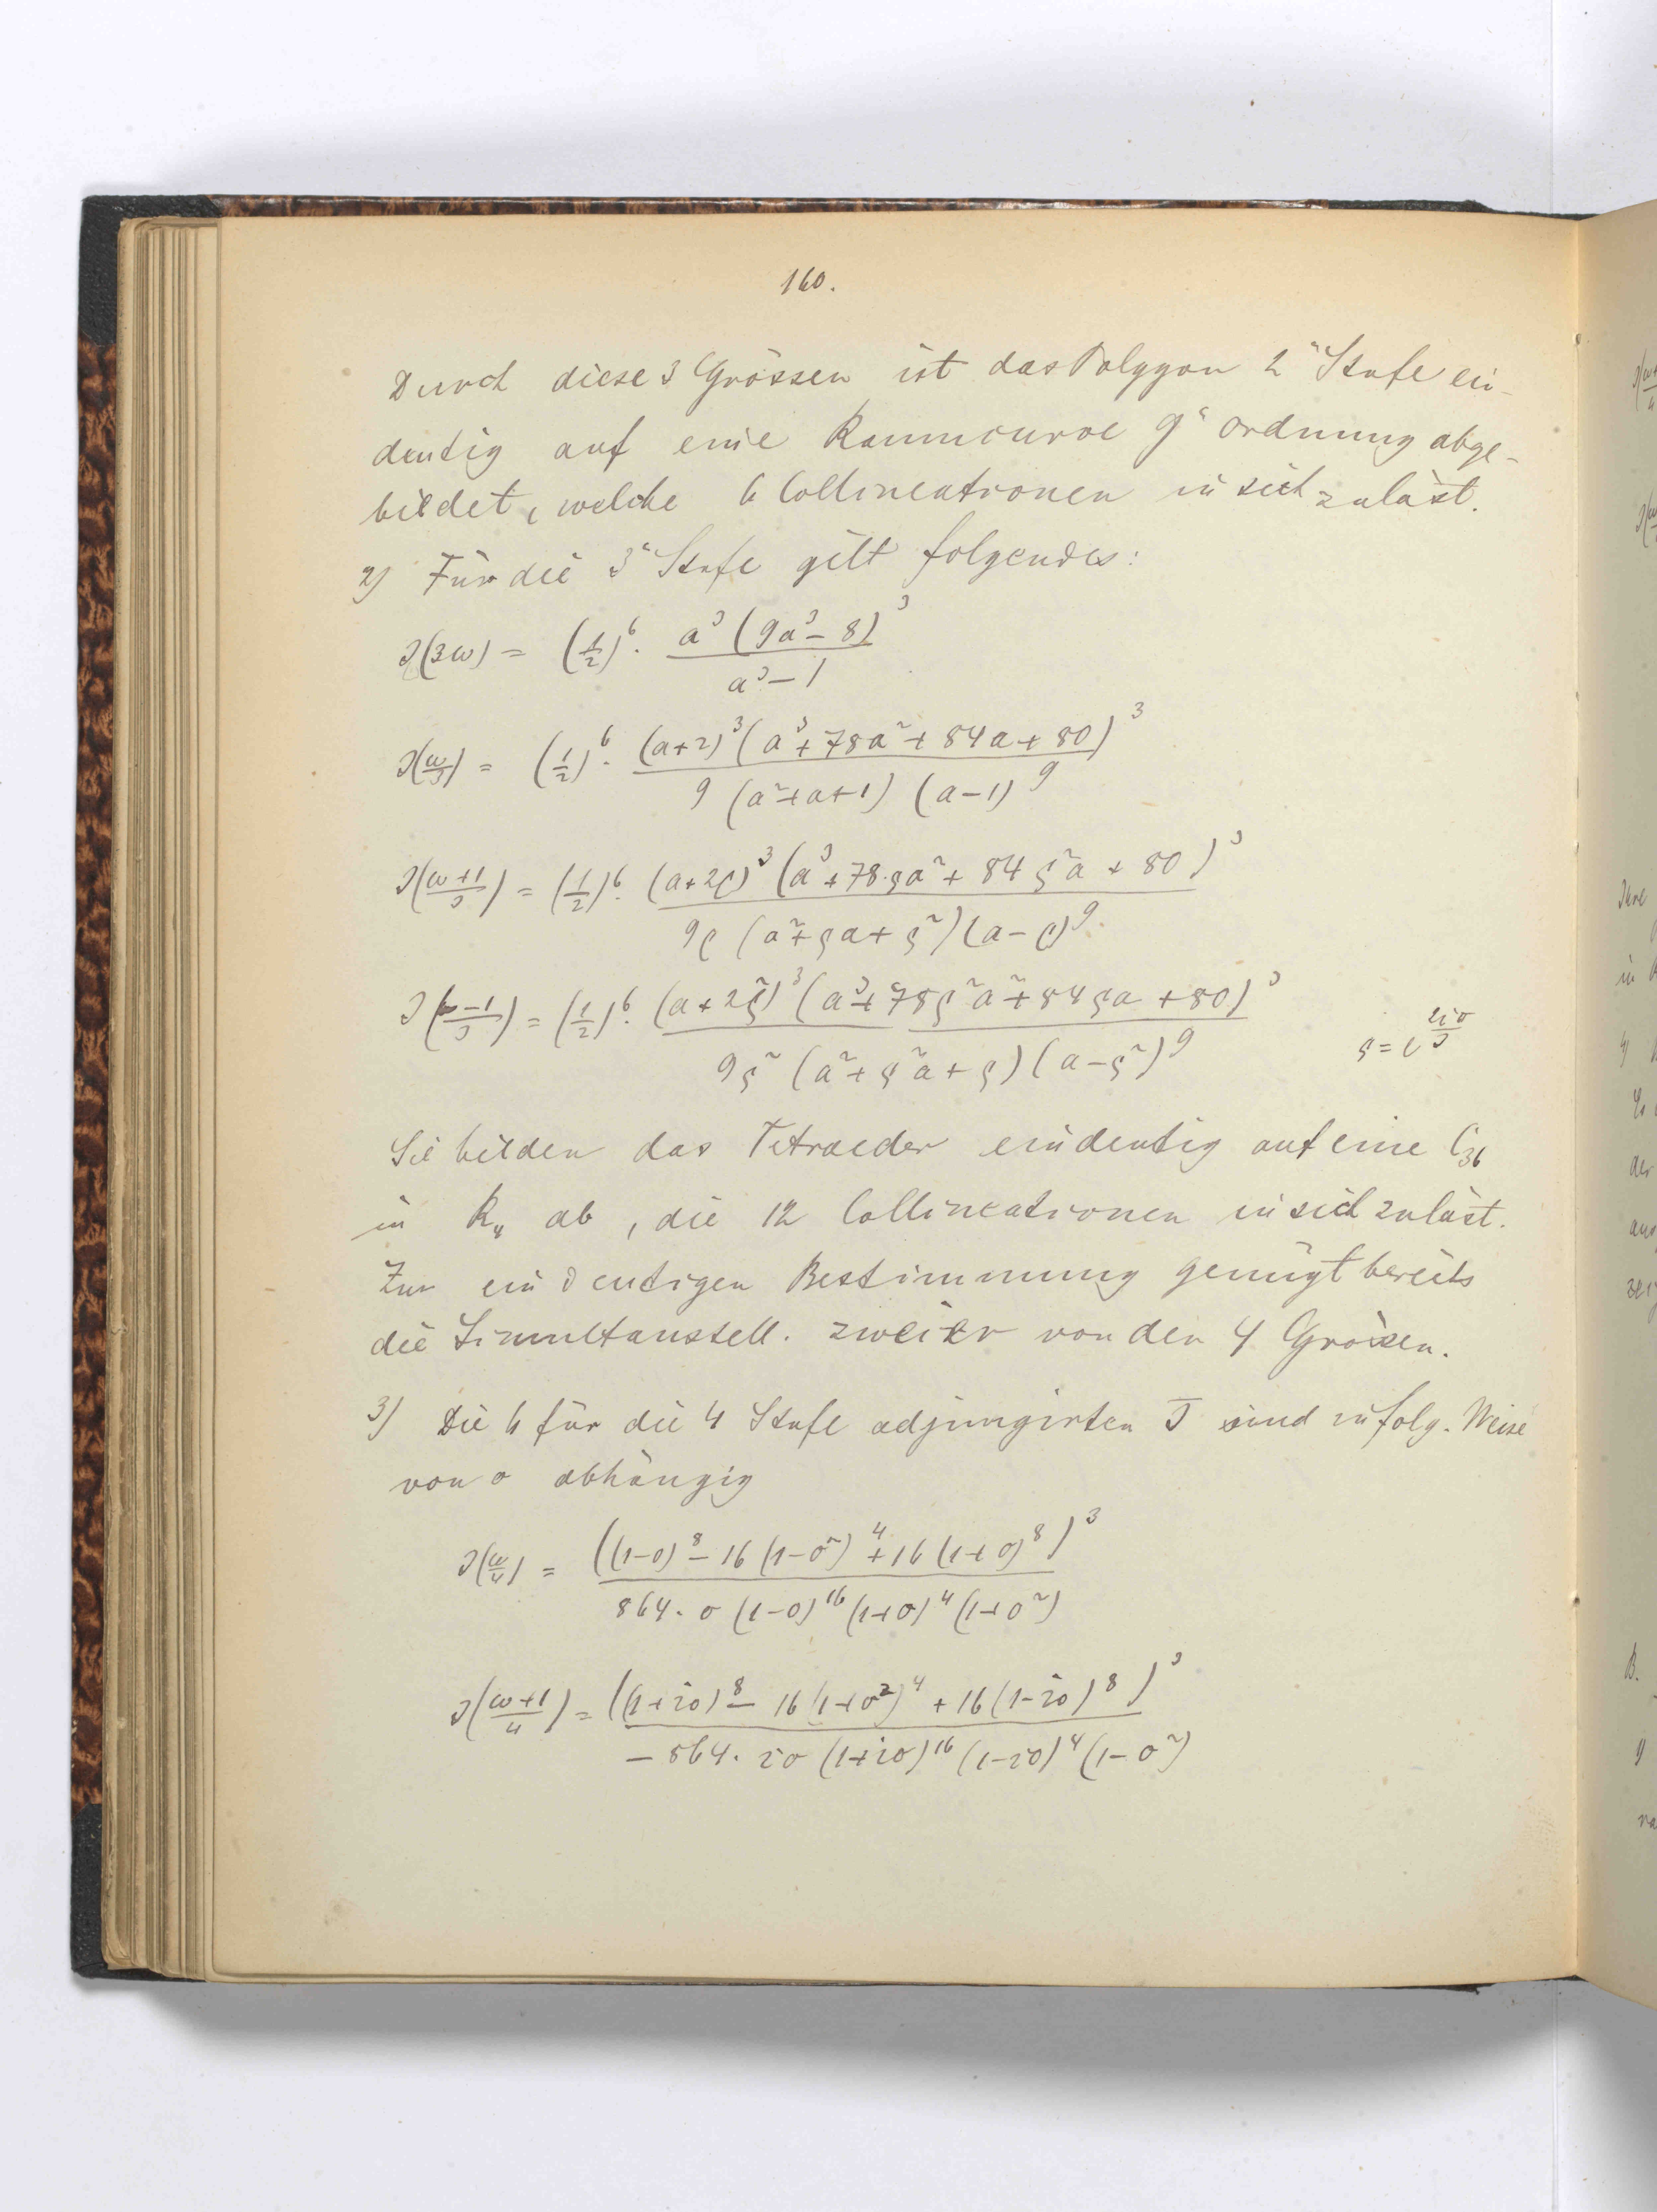 160.
Durch diese 3 Grössen ist das Polygon 2ᵗ Stufe ein-
deutig auf eine Raumcurve 9ᵗ Ordnung abge-
bildet, welche 6 Collineationen in sich zuläst.
2) Für die 3ᵗ Stufe gilt folgendes:
J(3ω) = (1/2)^6 · a^3 (9a^3 - 8)^3 / (a^3 - 1)
J(ω/3) = (1/2)^6 · (a+2)^3 (a^3 + 78a^2 + 84a + 80)^3 / 9 (a^2+a+1) (a-1)^9
J((ω+1)/3) = (1/2)^6 · (a+2ρ)^3 (a^3 + 78·ρa^2 + 84ρ^2a + 80)^3 / 9ρ (a^2+ρa+ρ^2)(a-ρ)^9
J((ω-1)/3) = (1/2)^6 · (a+2ρ^2)^3 (a^3 + 78ρ^2a^2 + 84ρa + 80)^3 / 9ρ^2 (a^2+ρ^2a+ρ)(a-ρ^2)^9 ρ = e^(2iπ/3)
Sie bilden das Tetraeder eindeutig auf eine C_36
in R_4 ab, die 12 Collineationen in sich zuläst.
Zur eindeutigen Bestimmung genügt bereits
die Simultanstell. zweier von den 4 Grössen.
3) Die 6 für die 4 Stufe adjungirten J sind in folg. Weise
von σ abhängig
J(ω/4) = ((1-σ)^8 - 16(1-σ^2)^4 + 16(1+σ)^8)^3 / 864·σ(1-σ)^16 (1+σ)^4 (1+σ^2)
J((ω+1)/4) = ((1+iσ)^8 - 16(1+σ^2)^4 + 16(1-iσ)^8)^3 / -864·iσ (1+iσ)^16 (1-iσ)^4 (1-σ^2)